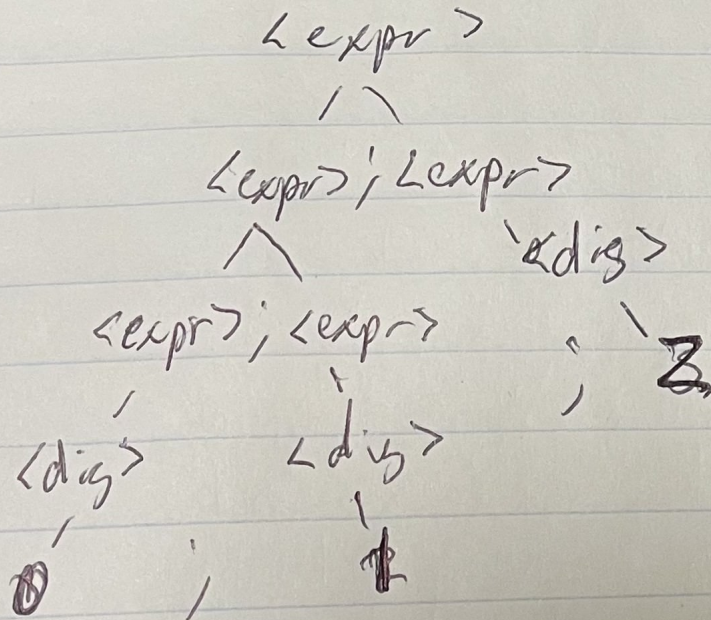 <expr>
<expr> ; <expr>
<dig>
<expr> ; <expr>
; 2
<dig> <dig>
0 ; 1